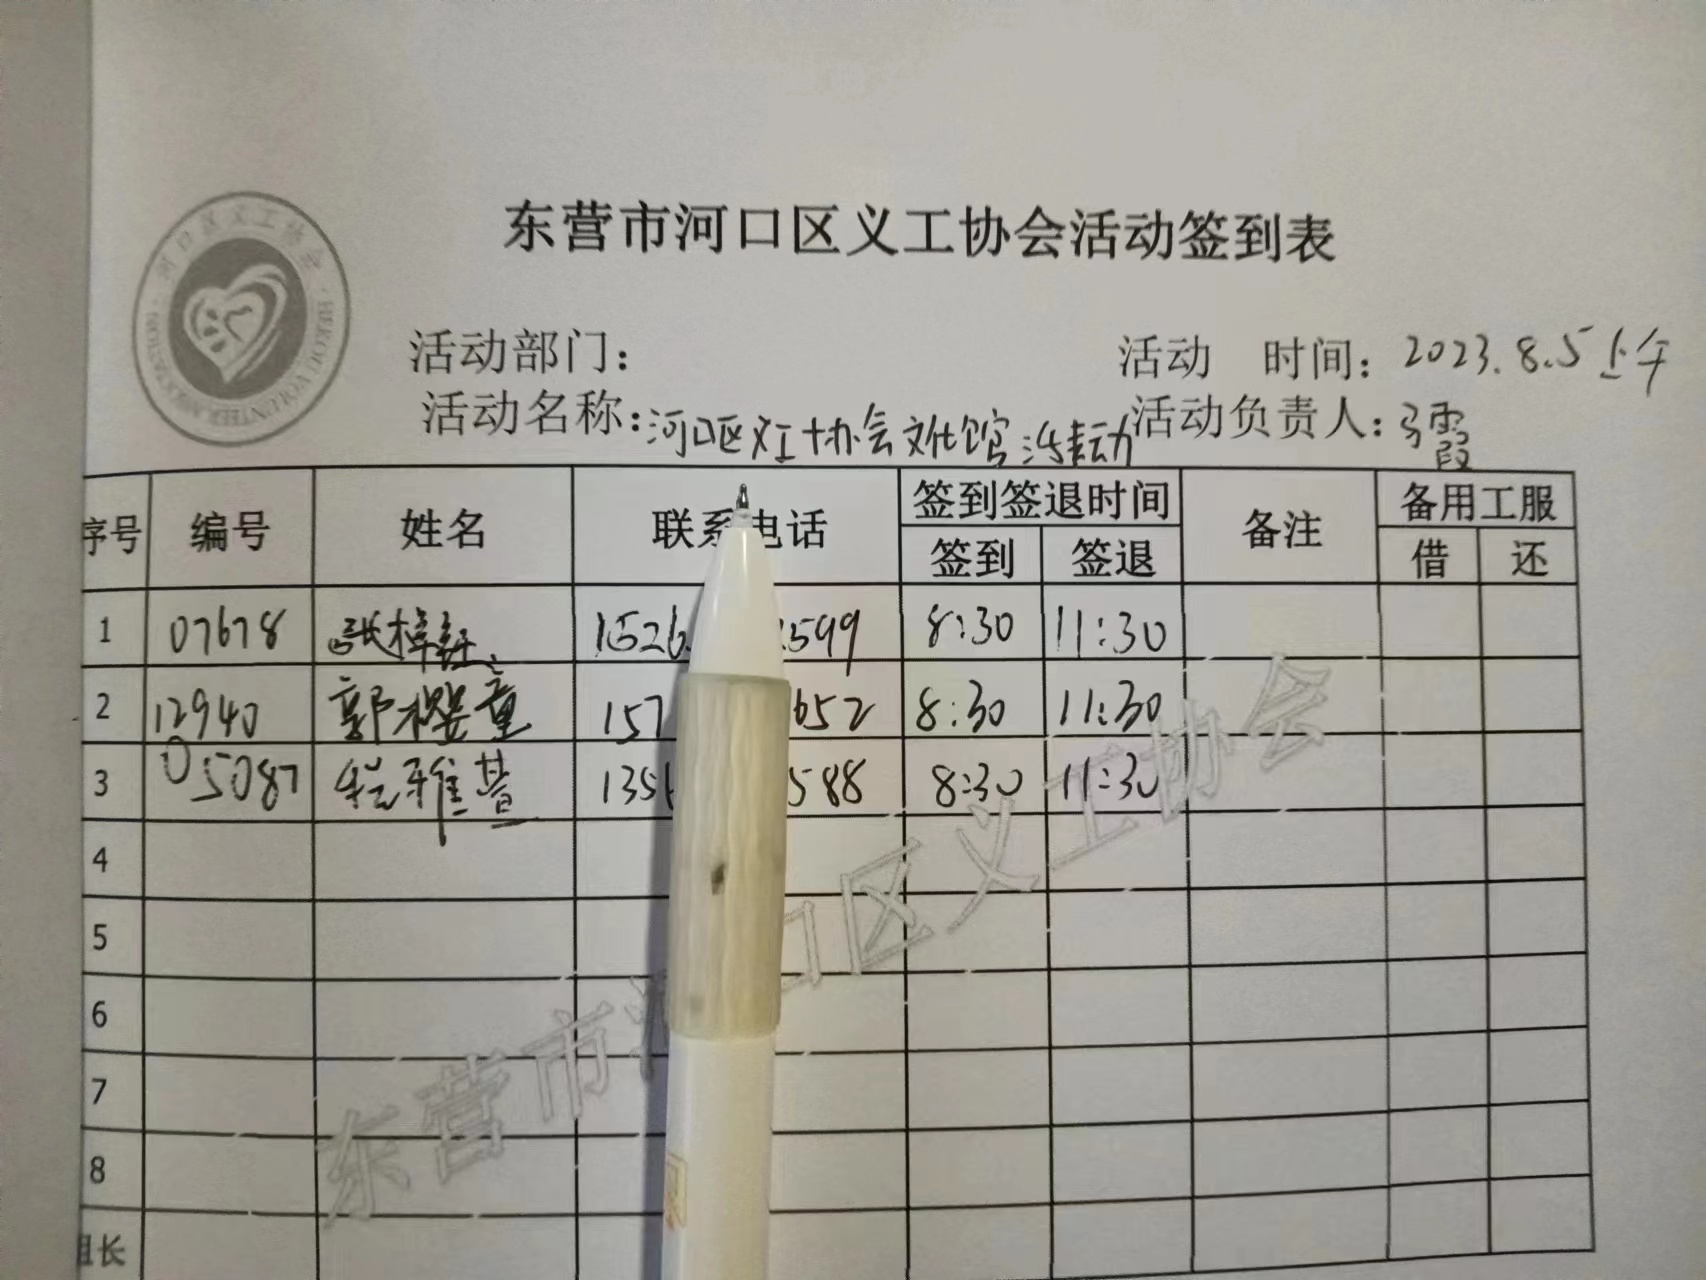 东营市河口区义工协会活动签到表
河口区义工协会
HEKOU VOLUNTEER ASSOCIATION
活动部门：
活动 时间：2023.8.5上午
活动名称：河口区义工协会文化馆活动
活动负责人：马霞
序号 编号 姓名 联系电话 签到签退时间 备注 备用工服
签到 签退 借 还
1 07678 1526 599 8:30 11:30
2 12940 郭樱童 157 652 8:30 11:30
3 05087 程雅普 135 588 8:30 11:30
4
5
6
7
8
组长
东营市河口区义工协会